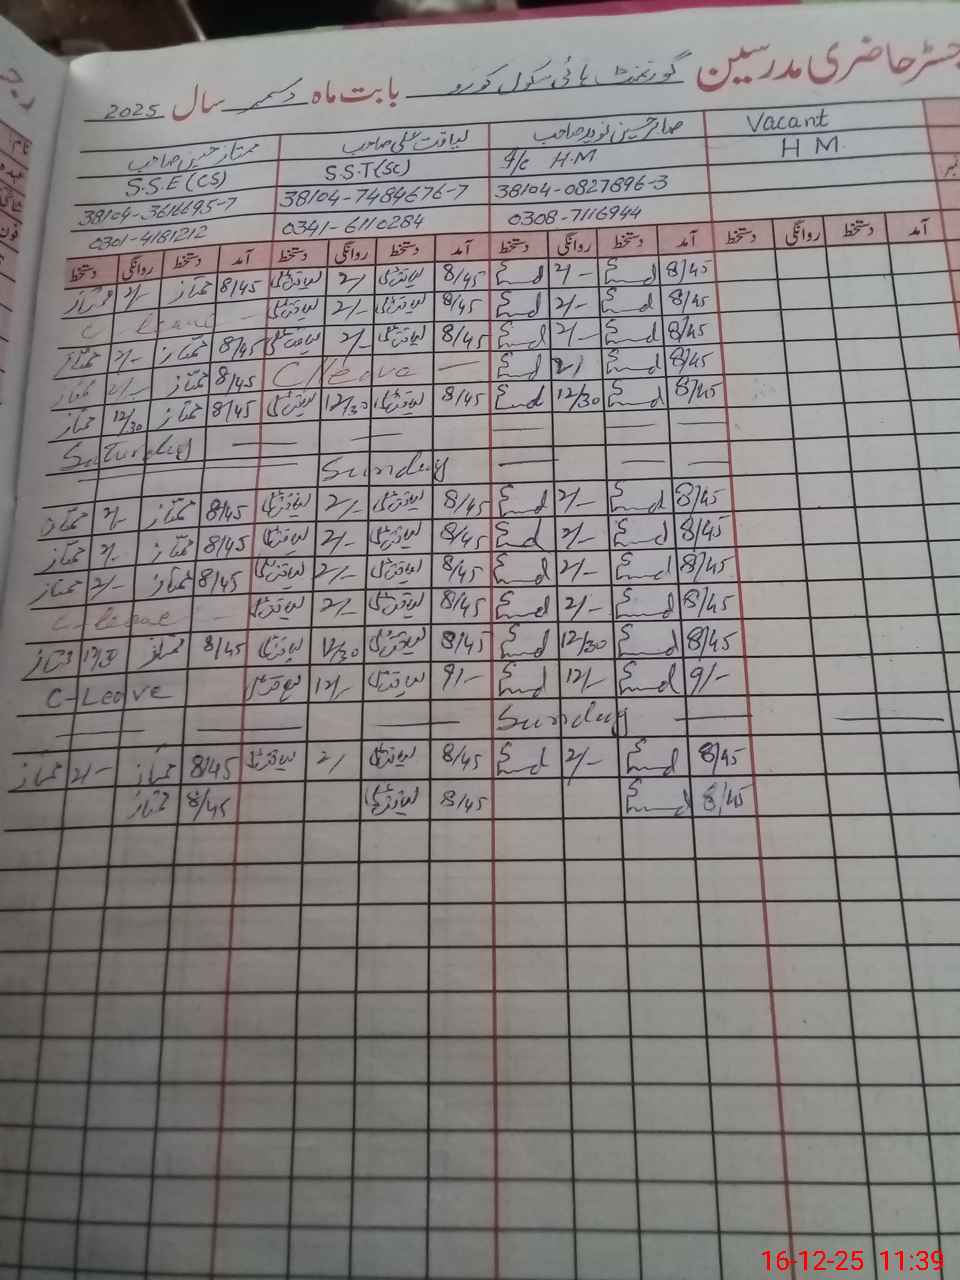 رجسٹر حاضری مدرسین گورنمنٹ ہائی سکول کورو بابت ماہ دسمبر سال 2025
Vacant صابر حسین نوید صاحب لیاقت علی صاحب ممتاز حسین صاحب
H M. I/c H.M S.S.T(Sc) S.S.E (CS)
38104-0827896-3 38104-7484676-7
0308-7116944 0341-6110284 0301-4181212
آمد دستخط روانگی دستخط آمد دستخط روانگی دستخط آمد دستخط روانگی دستخط آمد دستخط روانگی دستخط
8/45 2/- 8/45 لیاقت علی 2/- لیاقت علی 8/45 ممتاز 2/- ممتاز
8/45 2/- 8/45 لیاقت علی 2/- لیاقت علی C leave
8/45 2/- 8/45 لیاقت علی 2/- لیاقت علی 8/45 ممتاز 2/- ممتاز
8/45 2/ C/leave 8/45 ممتاز 2/- ممتاز
8/45 12/30 8/45 لیاقت علی 12/30 لیاقت علی 8/45 ممتاز 12/30 ممتاز
Saturday
Sunday
8/45 2/- 8/45 لیاقت علی 2/- لیاقت علی 8/45 ممتاز 2/- ممتاز
8/45 2/- 8/45 لیاقت علی 2/- لیاقت علی 8/45 ممتاز 2/- ممتاز
8/45 2/- 8/45 لیاقت علی 2/- لیاقت علی 8/45 ممتاز 2/- ممتاز
8/45 2/- 8/45 لیاقت علی 2/- لیاقت علی C-leave
8/45 12/30 8/45 لیاقت علی 12/30 لیاقت علی 8/45 ممتاز 12/30 ممتاز
9/- 12/- 9/- لیاقت علی 12/- لیاقت علی C-Leave
Sunday
8/45 2/- 8/45 لیاقت علی 2/ لیاقت علی 8/45 ممتاز 2/- ممتاز
8/45 8/45 لیاقت علی 8/45 ممتاز
16-12-25 11:39